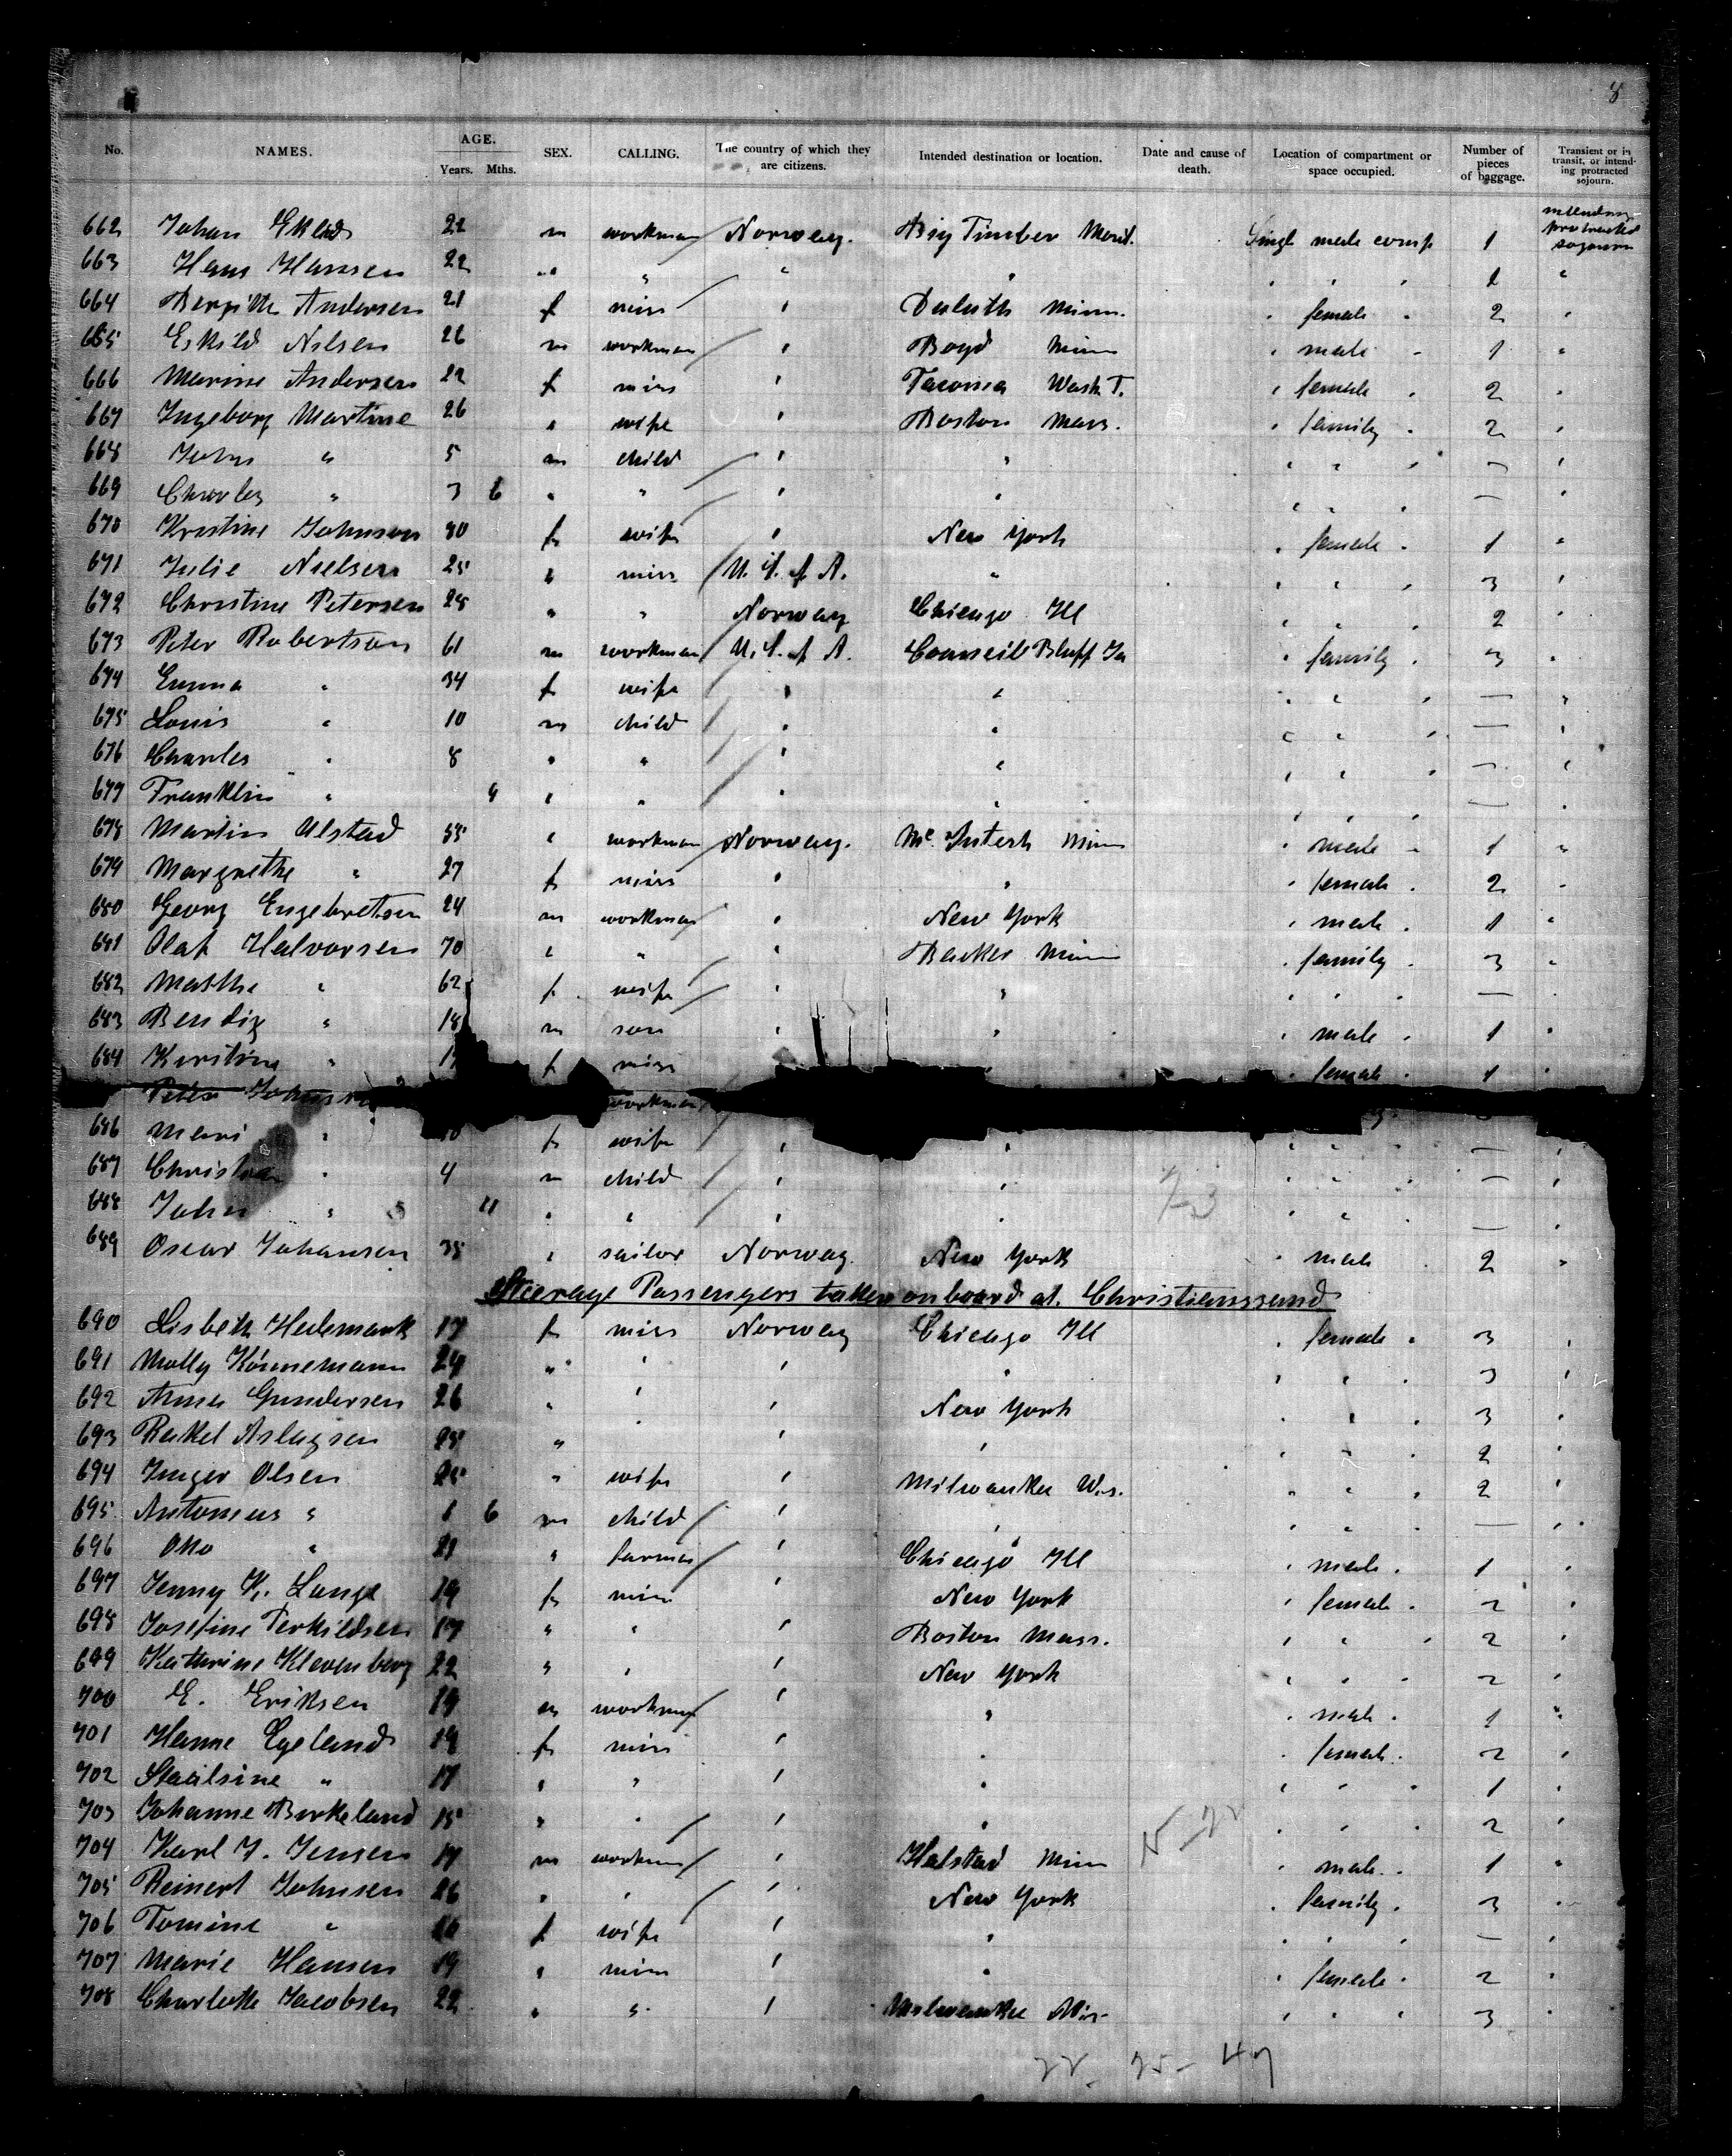 8
No. NAMES. AGE. Years. Mths. SEX. CALLING. The country of which they are citizens. Intended destination or location. Date and cause of death. Location of compartment or space occupied. Number of pieces of baggage. Transient or in transit, or intending protracted sojourn.
662 Johan 22 m workman Norway. Big Timber Mont. Single male comp 1 intending protracted sojourn
663 Hans Hansen 22 " " " " " " " 1 "
664 Bergitte Andersen 21 f miss " Duluth Minn. " female " 2 "
665 Eskild Nilsen 26 m workman " Boyd Minn " male " 1 "
666 Marine Andersen 22 f miss " Tacoma Wash T. " female " 2 "
667 Ingeborg Martine 26 " wife " Boston Mass. " family " 2 "
668 John " 5 m child " " " " " — "
669 Charles " 3 6 " " " " " " " — "
670 Kristine Johnson 30 f wife " New York " female " 1 "
671 Julie Nielsen 25 " miss U. S. of A. " " " " 3 "
672 Christine Petersen 28 " " Norway Chicago Ill " " " 2 "
673 Peter Robertson 61 m workman U. S. of A. Council Bluff Ia " family " 3 "
674 Emma " 34 f wife " " " " " — "
675 Louis " 10 m child " " " " " — "
676 Charles " 8 " " " " " " " — "
677 Franklin " 9 " " " " " " " — "
678 Martin Ulstad 55 " workman Norway. Mc Intosh Minn " male " 1 "
679 Margrethe " 27 f miss " " " female " 2 "
680 Georg Engebretsen 24 m workman " New York " male " 1 "
681 Olaf Halvorsen 70 " " " Becker Minn " family " 3 "
682 Matthe " 62 f wife " " " " " — "
683 Bendix " 18 m son " " " male " 1 "
684 Kirstine " f miss " " female " 1 "
Peter workman
686 Mari " f wife " " " " " — "
687 " 4 m child " " " " " — "
688 John " 11 " " " " " " " — "
689 Oscar Johansen 35 " sailor Norway. New York " male " 2 "
Steerage Passengers taken onboard at Christianssand
690 Lisbeth Hedemark 17 f miss Norway Chicago Ill " female " 3 "
691 Molly Könnemann 24 " " " " " " " 3 "
692 Anna Gundersen 26 " " " New York " " " 3 "
693 Rakel Aslagsen 25 " " " " " " " 2 "
694 Inger Olsen 25 " wife " Milwaukee Wis. " " " 2 "
695 Antonius " 1 6 m child " " " " " — "
696 Otto " 21 " farmer " Chicago Ill " male " 1 "
697 Jenny K. Lange 19 f miss " New York " female " 2 "
698 Josefine Terkildsen 17 " " " Boston Mass. " " " 2 "
699 Kathrine Klevenberg 22 " " " New York " " " 2 "
700 E. Eriksen 19 m workman " " " male " 1 "
701 Hanne Egeland 19 f miss " " " female " 2 "
702 Staalsine " 17 " " " " " " " 1 "
703 Johanne Birkeland 15 " " " " " " " 2 "
704 Karl J. Jensen 17 m workman " Halstad Minn " male " 1 "
705 Reinert Johnsen 26 " " " New York " family " 3 "
706 Tomine " f wife " " " " " — "
707 Marie Hansen 19 " miss " " " female " 2 "
708 Charlotte Jacobsen 22 " " " Milwaukee Wis. " " " 3 "